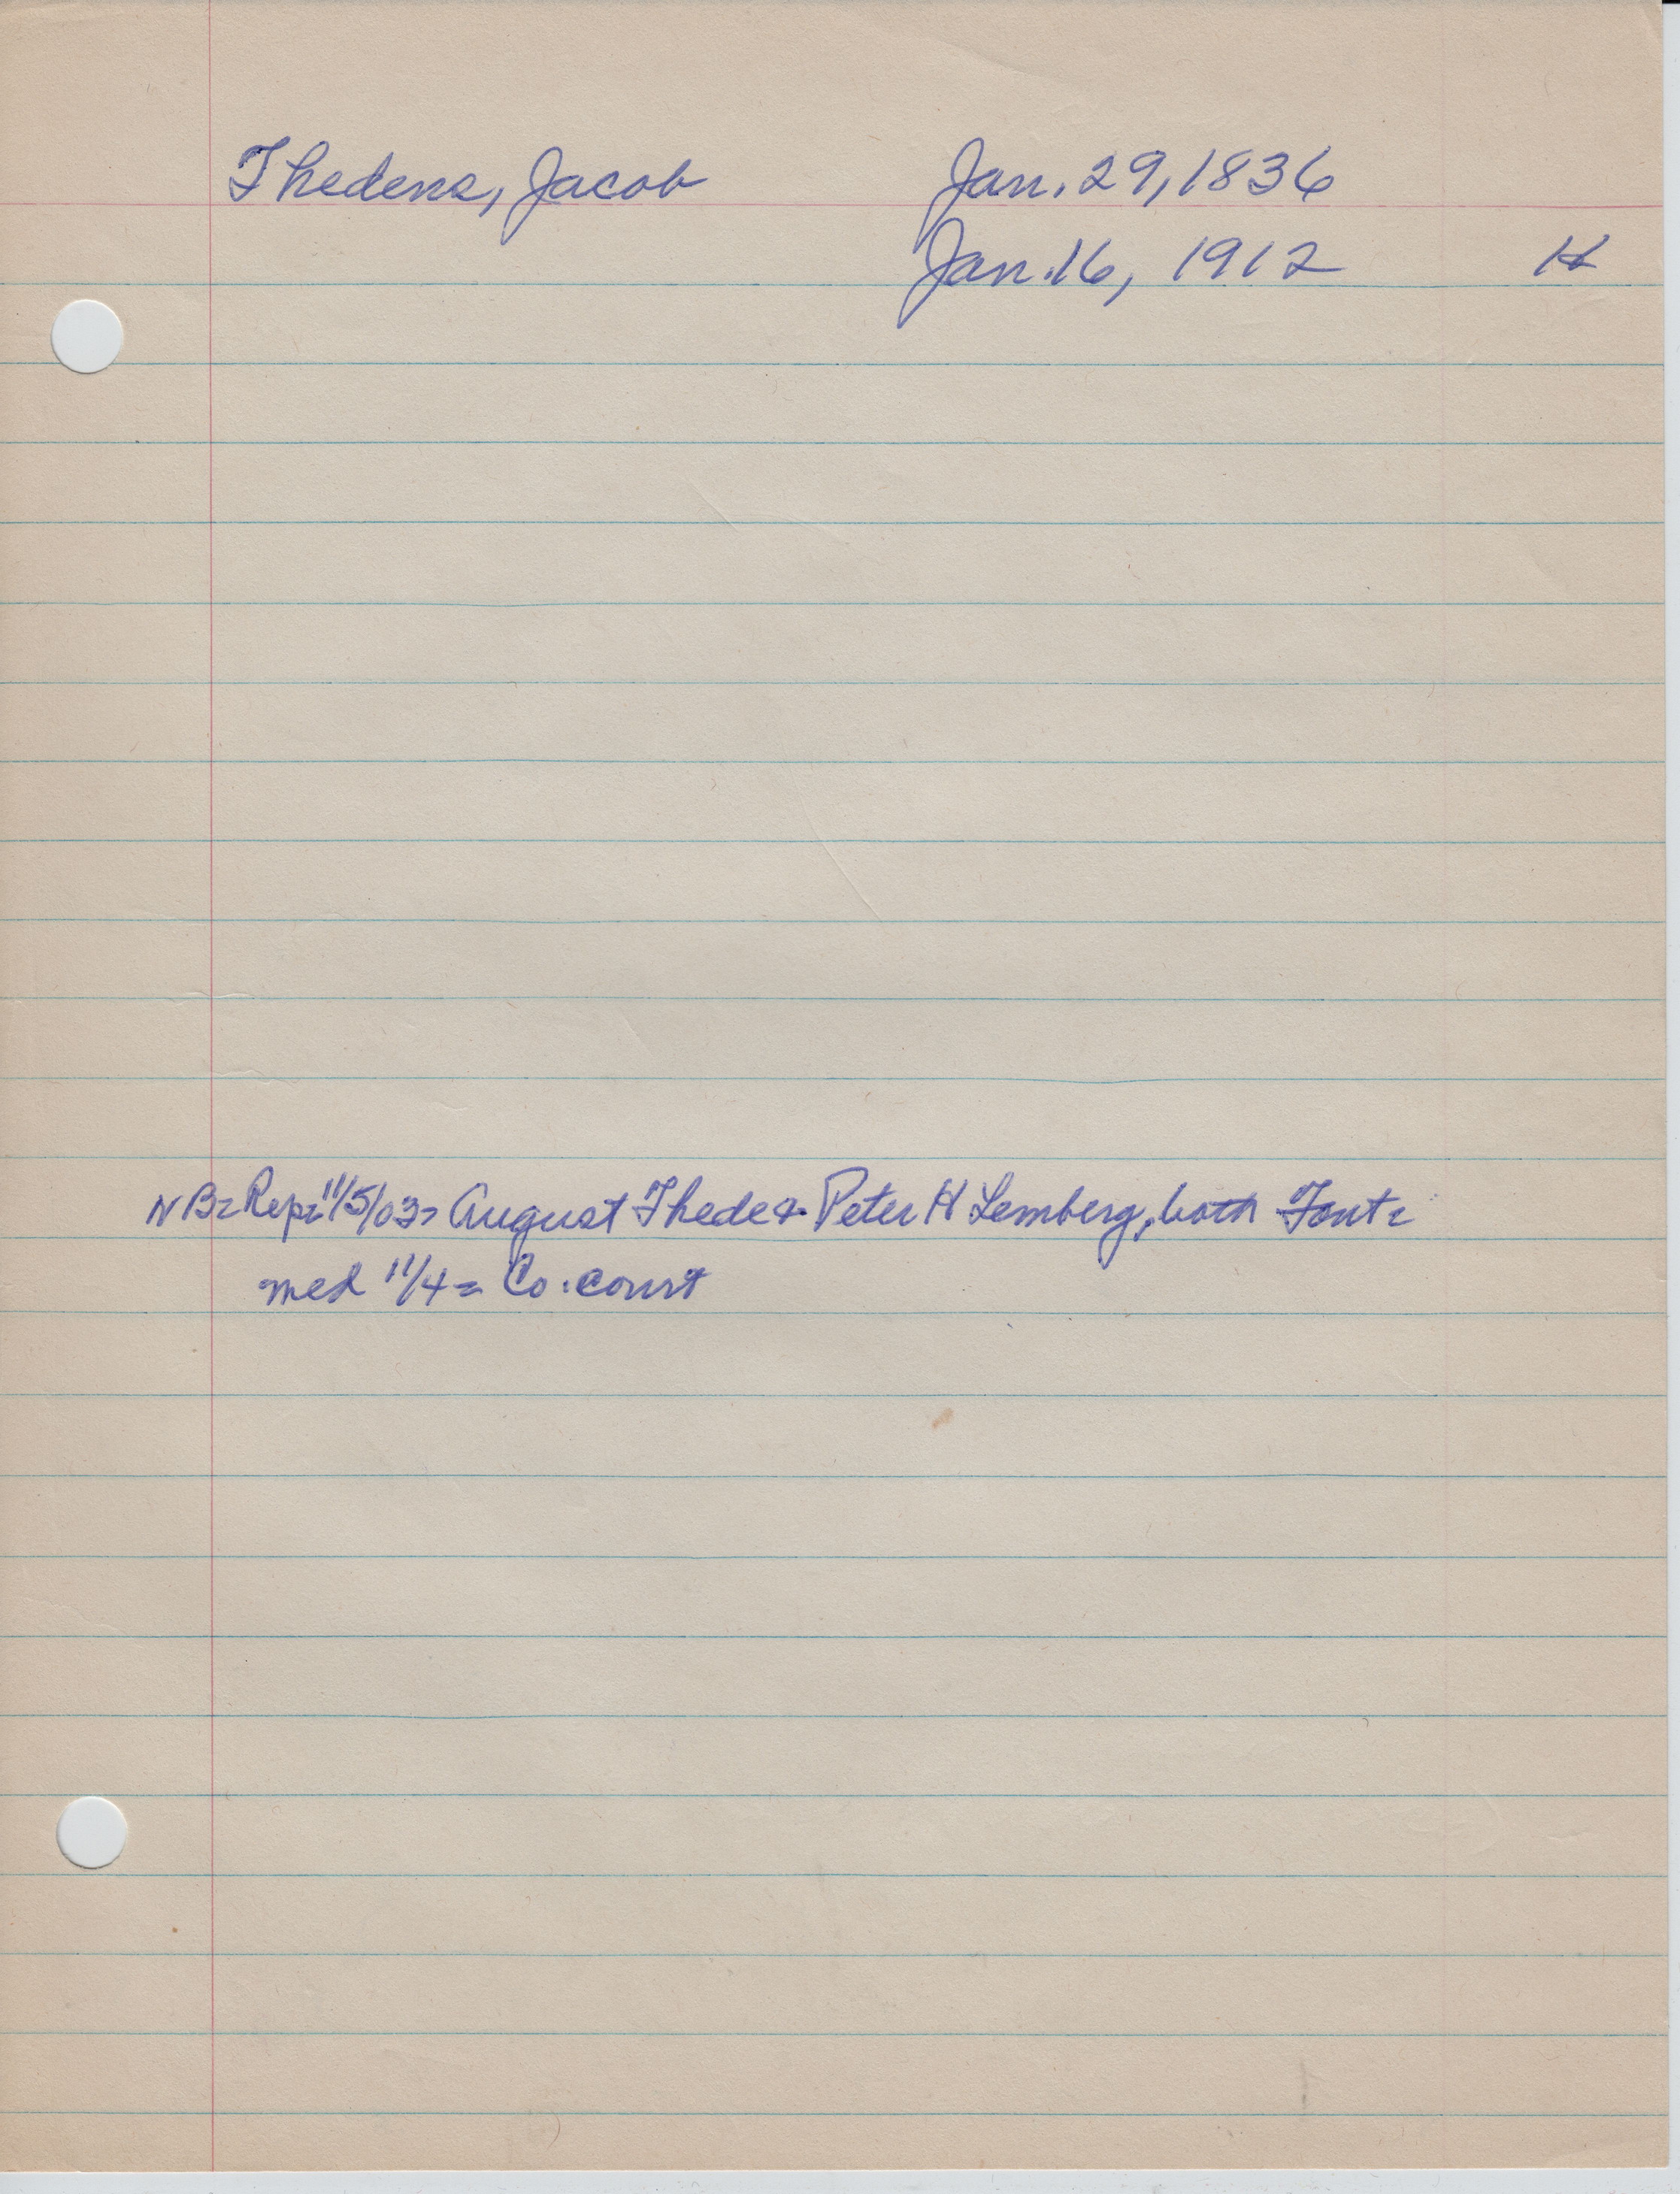 Thedens, Jacob Jan. 29, 1836
Jan. 16, 1912 H
NB= Rep= 11/5/03= August Thede & Peter H Lemberg, both
med 11/4= Co. court